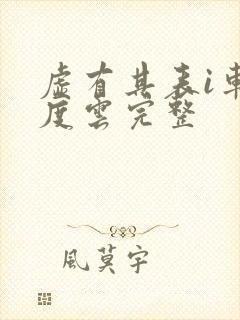 虛有其表i車
度雲完整
風莫宇